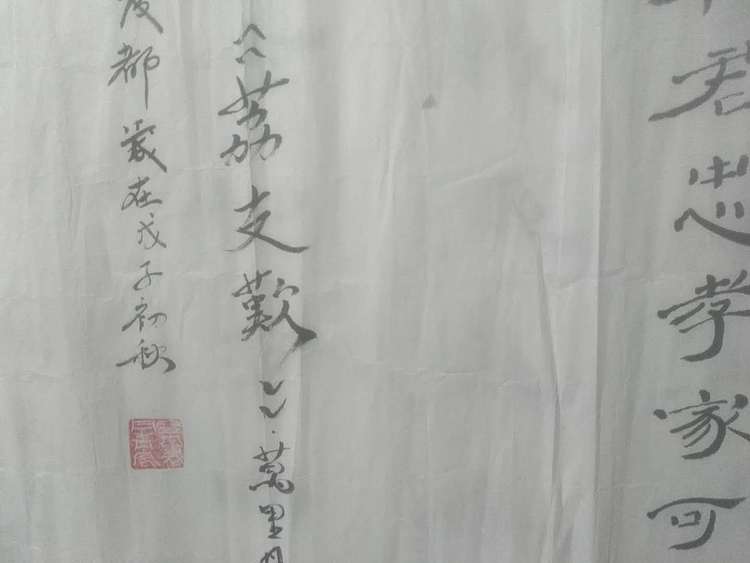 君忠孝家可
《荔支歎》·萬里
都歲在戊子初秋